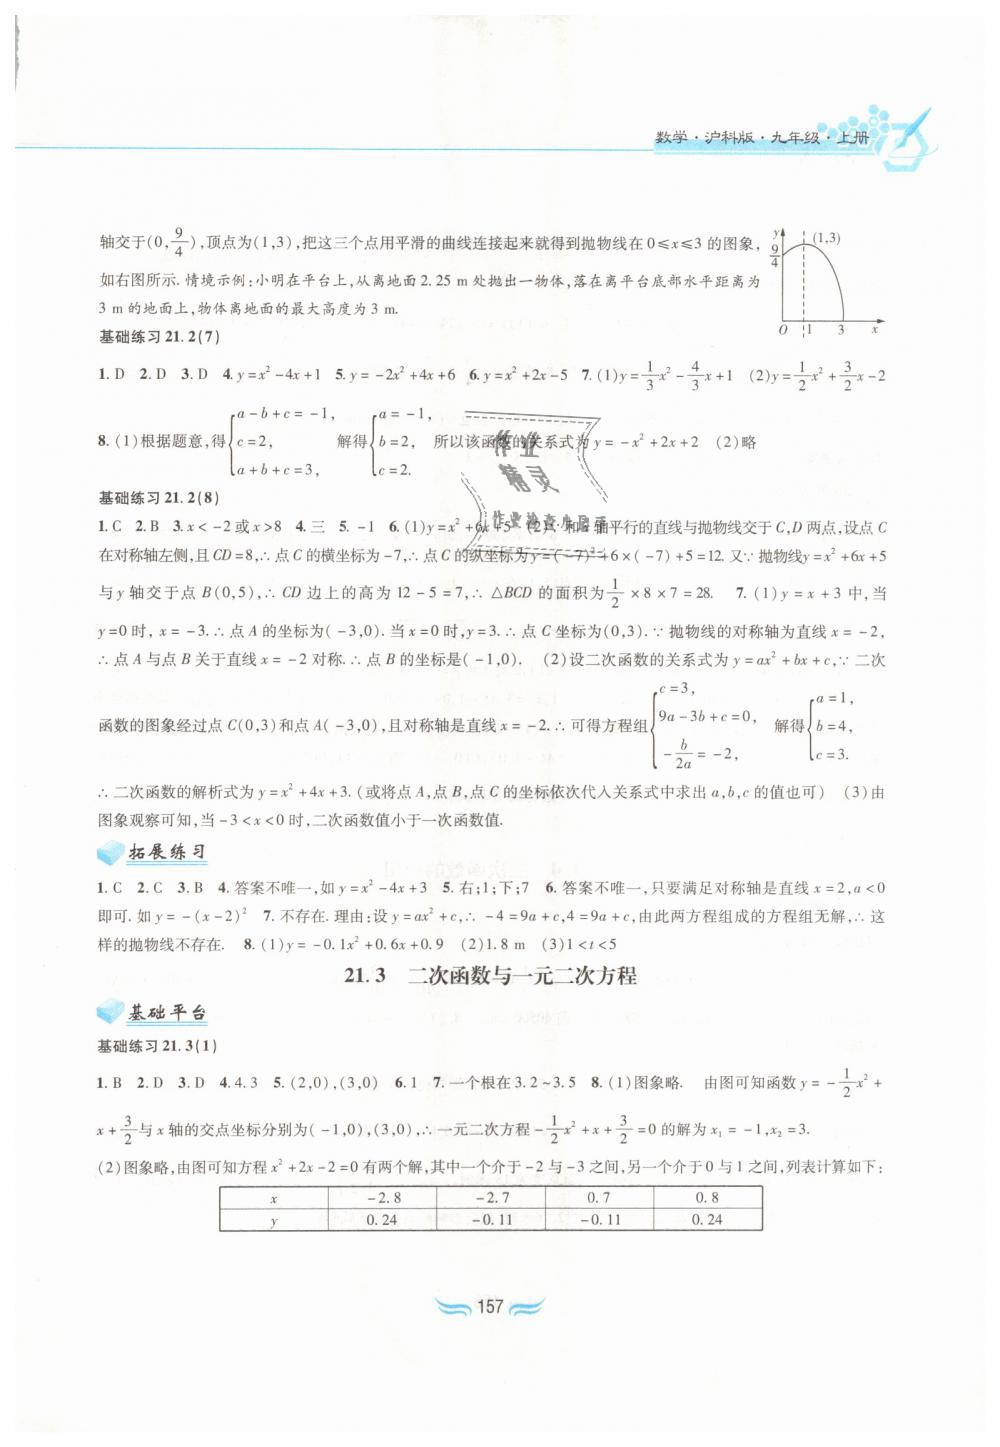 数学·沪科版·九年级·上册
轴交于(0,9/4),顶点为(1,3),把这三个点用平滑的曲线连接起来就得到抛物线在0≤x≤3的图象,
如右图所示.情境示例:小明在平台上,从离地面2.25 m处抛出一物体,落在离平台底部水平距离为
3 m的地面上,物体离地面的最大高度为3 m.
y
9/4
(1,3)
O 1 3 x
基础练习21.2(7)
1.D 2.D 3.D 4.y=x²-4x+1 5.y=-2x²+4x+6 6.y=x²+2x-5 7.(1)y=1/3x²-4/3x+1 (2)y=1/2x²+3/2x-2
8.(1)根据题意,得{a-b+c=-1, c=2, a+b+c=3, 解得{a=-1, b=2, c=2. 所以该函数的关系式为y=-x²+2x+2 (2)略
作业
精灵
作业检查小帮手
基础练习21.2(8)
1.C 2.B 3.x<-2或x>8 4.三 5.-1 6.(1)y=x²+6x+5 (2)∵和x轴平行的直线与抛物线交于C,D两点,设点C
在对称轴左侧,且CD=8,∴点C的横坐标为-7,∴点C的纵坐标为y=(-7)²+6×(-7)+5=12.又∵抛物线y=x²+6x+5
与y轴交于点B(0,5),∴CD边上的高为12-5=7,∴△BCD的面积为1/2×8×7=28. 7.(1)y=x+3中,当
y=0时,x=-3.∴点A的坐标为(-3,0).当x=0时,y=3.∴点C坐标为(0,3).∵抛物线的对称轴为直线x=-2,
∴点A与点B关于直线x=-2对称.∴点B的坐标是(-1,0). (2)设二次函数的关系式为y=ax²+bx+c,∵二次
函数的图象经过点C(0,3)和点A(-3,0),且对称轴是直线x=-2.∴可得方程组{c=3, 9a-3b+c=0, -b/2a=-2, 解得{a=1, b=4, c=3.
∴二次函数的解析式为y=x²+4x+3.(或将点A,点B,点C的坐标依次代入关系式中求出a,b,c的值也可) (3)由
图象观察可知,当-3<x<0时,二次函数值小于一次函数值.
拓展练习
1.C 2.C 3.B 4.答案不唯一,如y=x²-4x+3 5.右;1;下;7 6.答案不唯一,只要满足对称轴是直线x=2,a<0
即可.如y=-(x-2)² 7.不存在.理由:设y=ax²+c,∴-4=9a+c,4=9a+c,由此两方程组成的方程组无解,∴这
样的抛物线不存在. 8.(1)y=-0.1x²+0.6x+0.9 (2)1.8 m (3)1<t<5
21.3 二次函数与一元二次方程
基础平台
基础练习21.3(1)
1.B 2.D 3.D 4.4.3 5.(2,0),(3,0) 6.1 7.一个根在3.2~3.5 8.(1)图象略. 由图可知函数y=-1/2x²+
x+3/2与x轴的交点坐标分别为(-1,0),(3,0),∴一元二次方程-1/2x²+x+3/2=0的解为x₁=-1,x₂=3.
(2)图象略,由图可知方程x²+2x-2=0有两个解,其中一个介于-2与-3之间,另一个介于0与1之间,列表计算如下:
x -2.8 -2.7 0.7 0.8
y 0.24 -0.11 -0.11 0.24
157